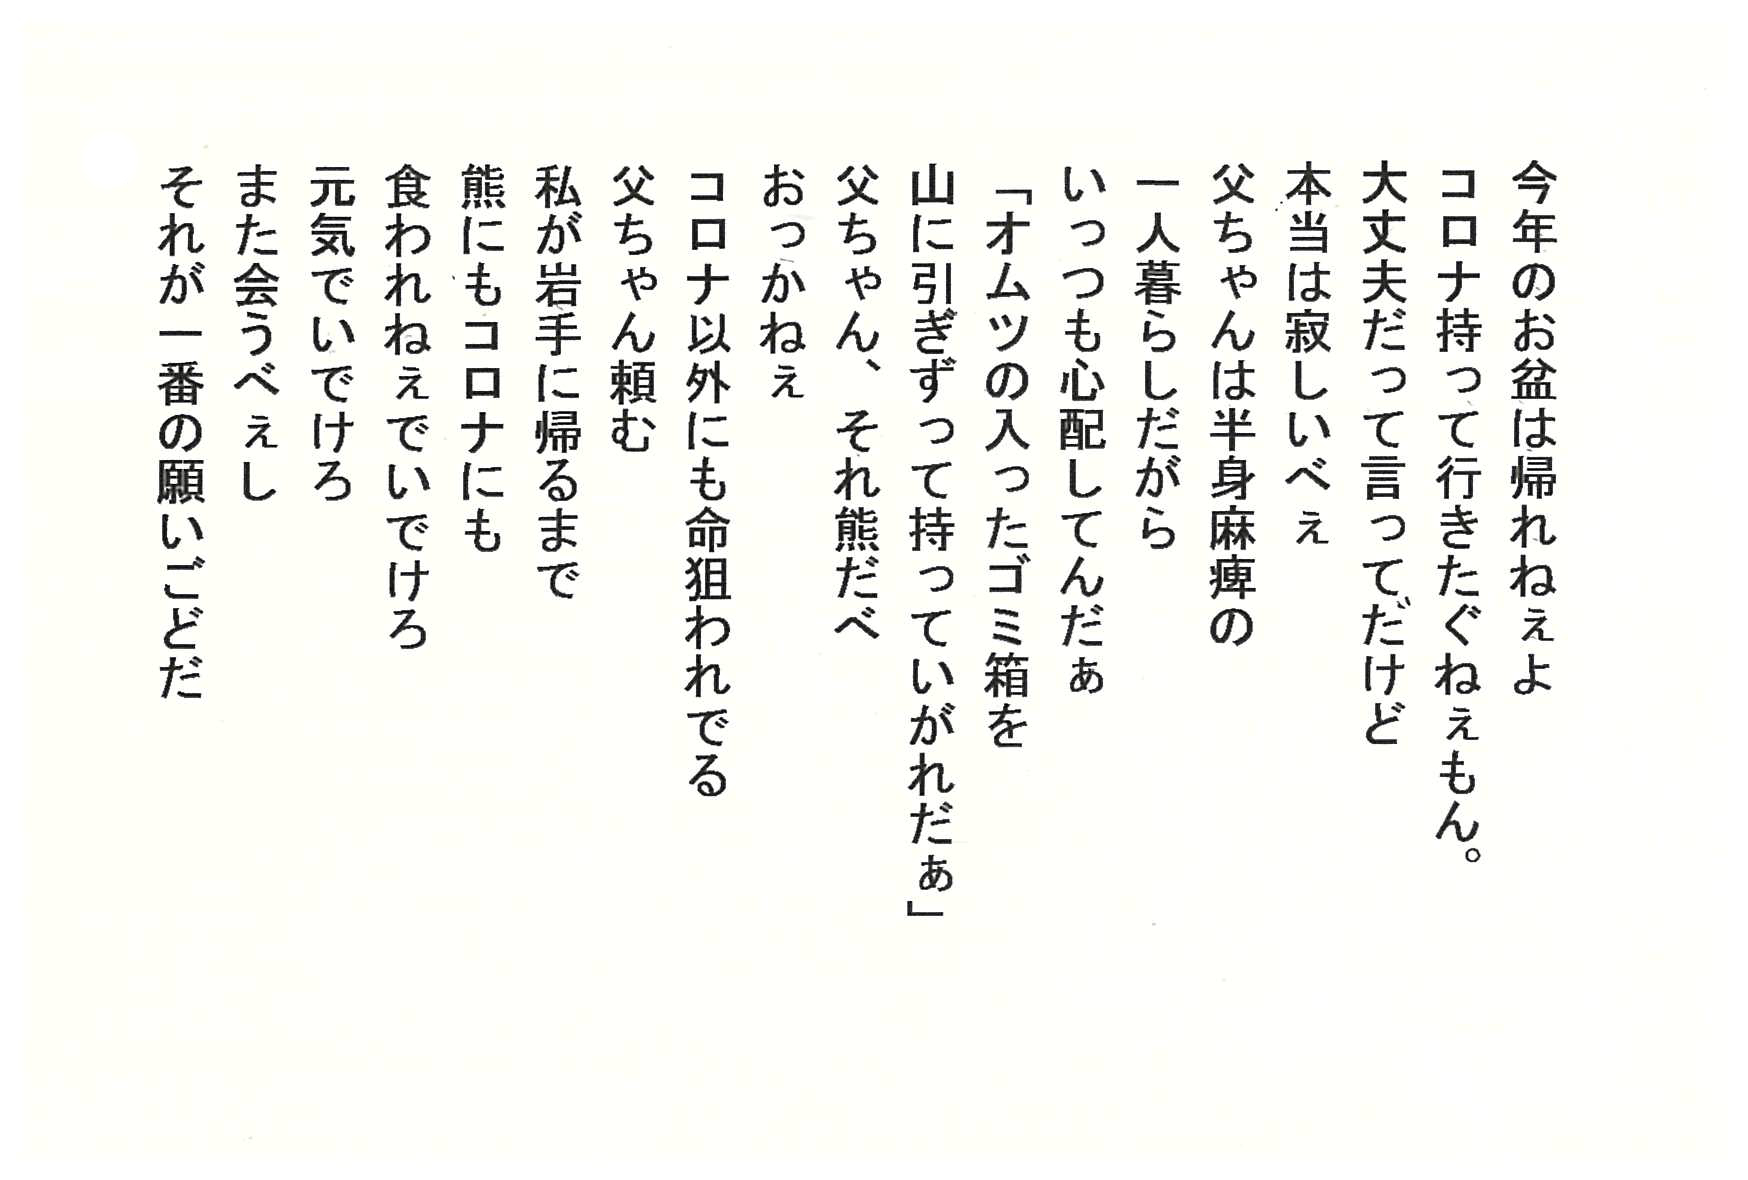 今年のお盆は帰れねぇよ
コロナ持って行きたぐねぇもん。
大丈夫だって言ってだけど
本当は寂しいべぇ
父ちゃんは半身麻痺の
一人暮らしだがら
いっつも心配してんだぁ
「オムツの入ったゴミ箱を
山に引ぎずって持っていがれだぁ」
父ちゃん、それ熊だべ
おっかねぇ
コロナ以外にも命狙われでる
父ちゃん頼む
私が岩手に帰るまで
熊にもコロナにも
食われねぇでいでけろ
元気でいでけろ
また会うべぇし
それが一番の願いごどだ